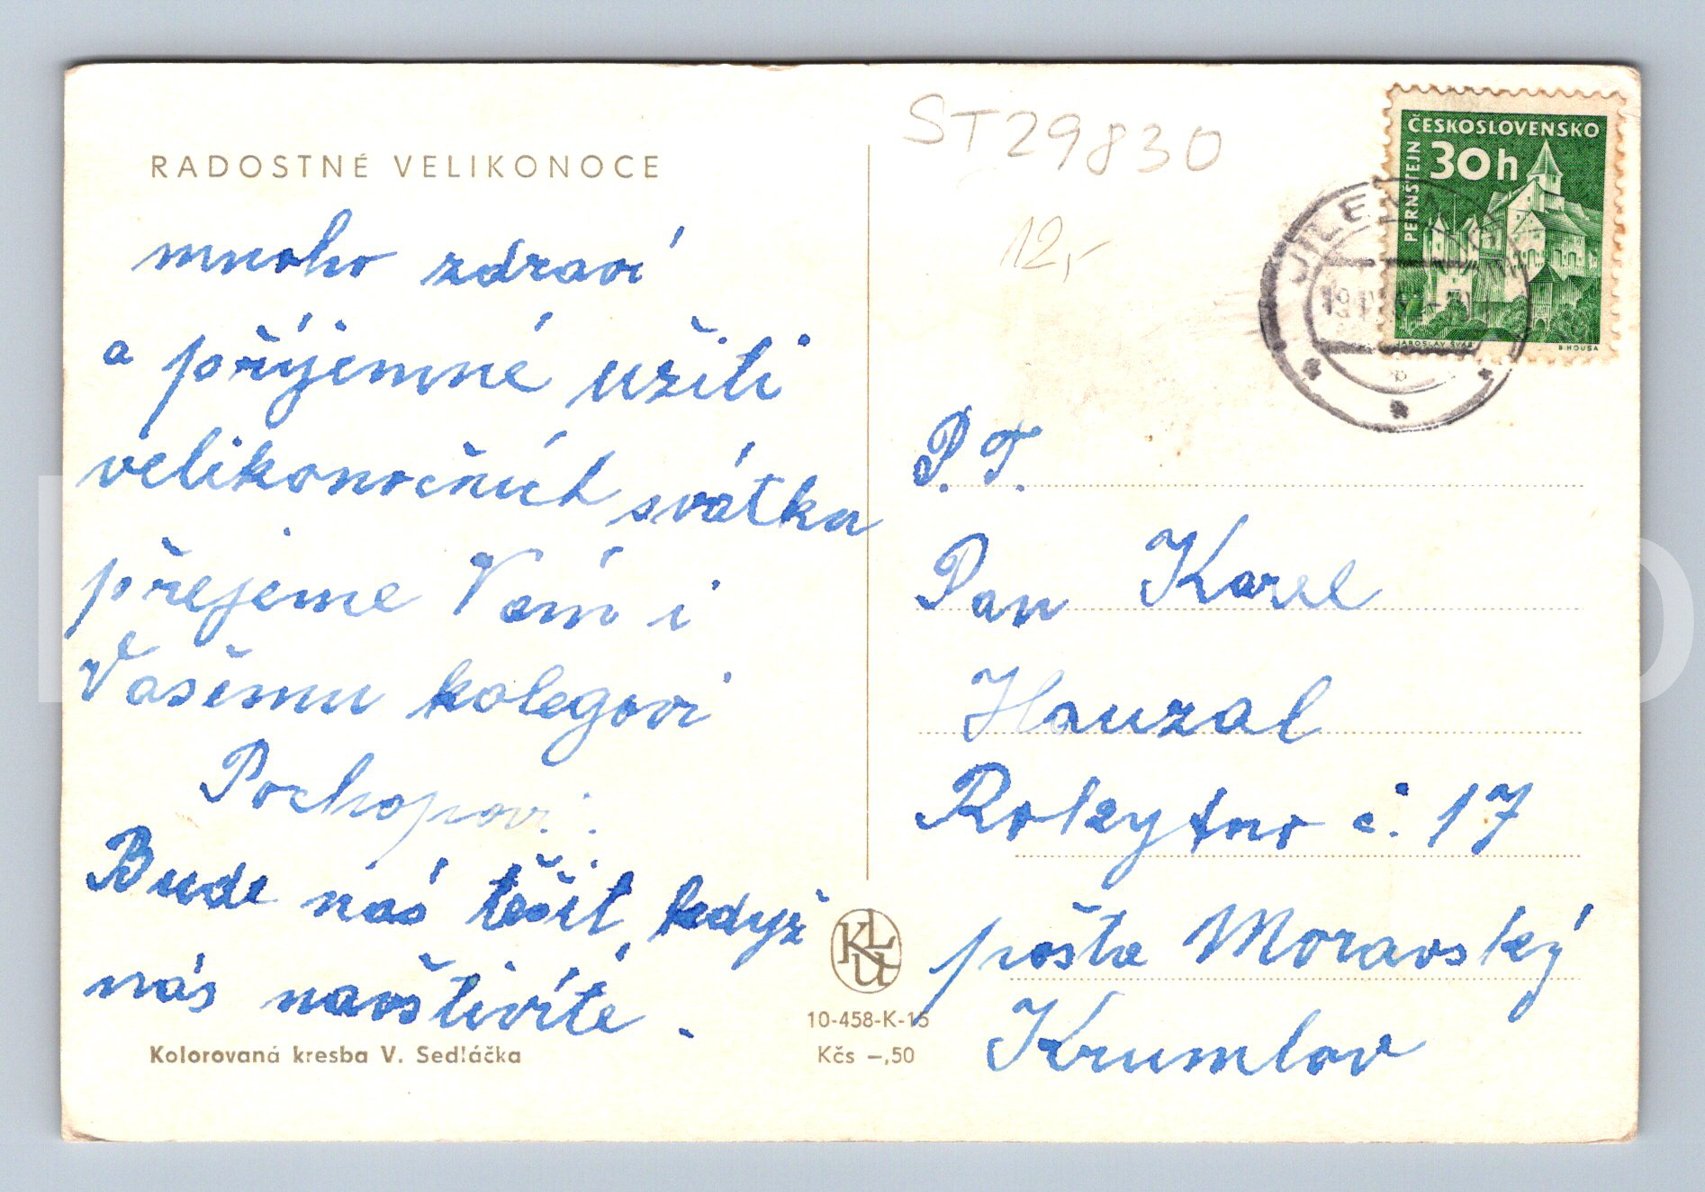 RADOSTNÉ VELIKONOCE
mnoho zdraví
a příjemné užití
velikonočních svátku
přejeme Vám i
Vašemu kolegovi
Pochopovi.
Bude nás těšit, když
nás navštívíte.
Kolorovaná kresba V. Sedláčka
KLU
10-458-K-15
Kčs –,50
ST29830
12,-
ČESKOSLOVENSKO
30h
PERNŠTEJN
JAROSLAV ŠVÁB
B. HOUSA
P. T.
Pan Karel
Hauzal
Rokytno č. 17
pošta Moravský
Krumlov